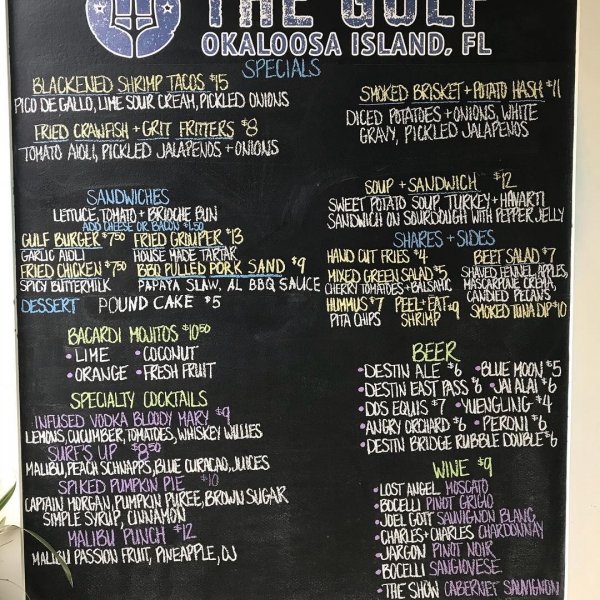 THE GULF
OKALOOSA ISLAND, FL
SPECIALS
BLACKENED SHRIMP TACOS $15
PICO DE GALLO, LIME SOUR CREAM, PICKLED ONIONS
FRIED CRAWFISH + GRIT FRITTERS $8
TOMATO AIOLI, PICKLED JALAPENOS + ONIONS
SMOKED BRISKET + POTATO HASH $11
DICED POTATOES + ONIONS, WHITE
GRAVY, PICKLED JALAPENOS
SANDWICHES
LETTUCE, TOMATO + BRIOCHE BUN
ADD CHEESE OR BACON $1.50
GULF BURGER $7.50 FRIED GROUPER $13
GARLIC AIOLI HOUSE MADE TARTAR
FRIED CHICKEN $7.50 BBQ PULLED PORK SAND $9
SPICY BUTTERMILK PAPAYA SLAW, AL BBQ SAUCE
DESSERT POUND CAKE $5
SOUP + SANDWICH $12
SWEET POTATO SOUP, TURKEY + HAVARTI
SANDWICH ON SOURDOUGH WITH PEPPER JELLY
SHARES + SIDES
HAND CUT FRIES $4 BEET SALAD $7
MIXED GREEN SALAD $5 SHAVED FENNEL, APPLES,
CHERRY TOMATOES + BALSAMIC MASCARPONE CREMA,
CANDIED PECANS
HUMMUS $7 PEEL + EAT $9 SMOKED TUNA DIP $10
PITA CHIPS SHRIMP
BACARDI MOJITOS $10.50
• LIME • COCONUT
• ORANGE • FRESH FRUIT
SPECIALTY COCKTAILS
INFUSED VODKA BLOODY MARY $9
LEMONS, CUCUMBER, TOMATOES, WHISKEY WILLIES
SURF'S UP $8.50
MALIBU, PEACH SCHNAPPS, BLUE CURACAO, JUICES
SPIKED PUMPKIN PIE $10
CAPTAIN MORGAN, PUMPKIN PUREE, BROWN SUGAR
SIMPLE SYRUP, CINNAMON
MALIBU PUNCH $12
MALIBU PASSION FRUIT, PINEAPPLE, OJ
BEER
• DESTIN ALE $6 • BLUE MOON $5
• DESTIN EAST PASS $6 • JAI ALAI $6
• DOS EQUIS $7 • YUENGLING $4
• ANGRY ORCHARD $6 • PERONI $6
• DESTIN BRIDGE RUBBLE DOUBLE $6
WINE $9
• LOST ANGEL MOSCATO
• BOCELLI PINOT GRIGIO
• JOEL GOTT SAUVIGNON BLANC
• CHARLES + CHARLES CHARDONNAY
• JARGON PINOT NOIR
• BOCELLI SANGIOVESE
• THE SHOW CABERNET SAUVIGNON